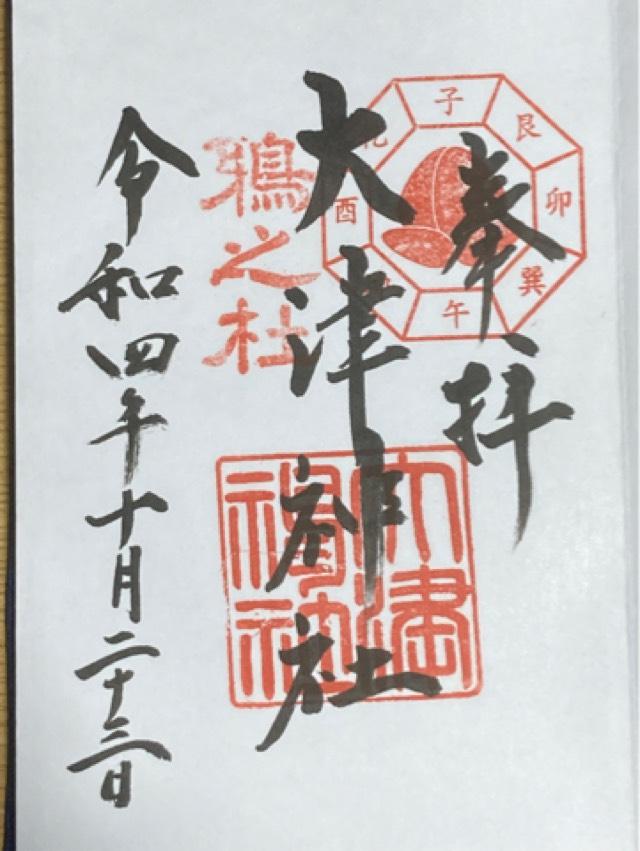 奉拝
大津神社
令和四年十月二十三日
鴉之杜
子
艮
卯
巽
午
酉